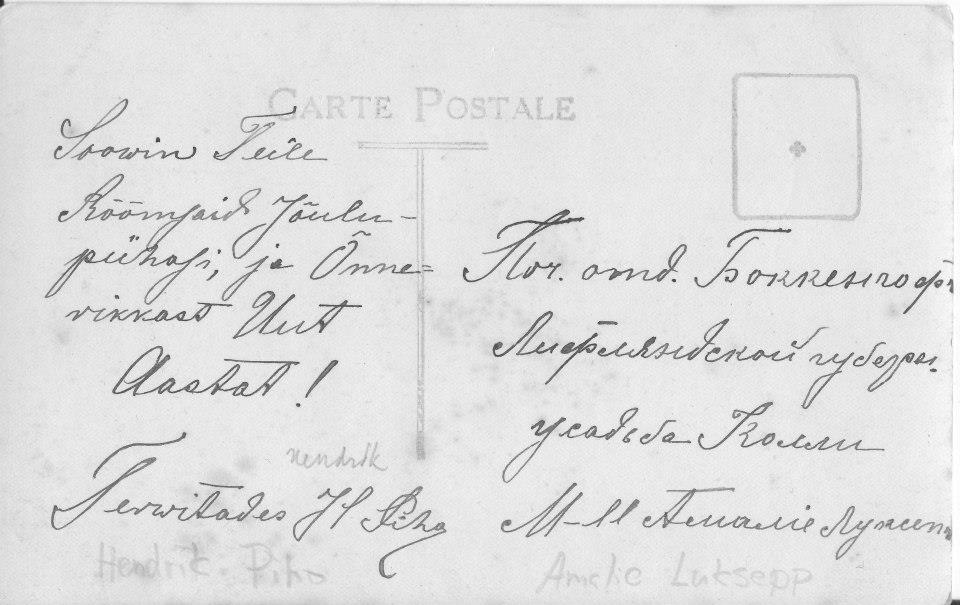 CARTE POSTALE
Soowin Teile
Rõõmsaid Jõulu-
pühasi, ja Õnne=
rikkast Uut
Aastat!
Hendrik
Terwitades H Piho
Hendrik. Piho
Поч. отд. Боккенгоф
Лифляндской губерн.
усадьба Колли
М-ll Амалiе Луксепп
Amelie Luksepp